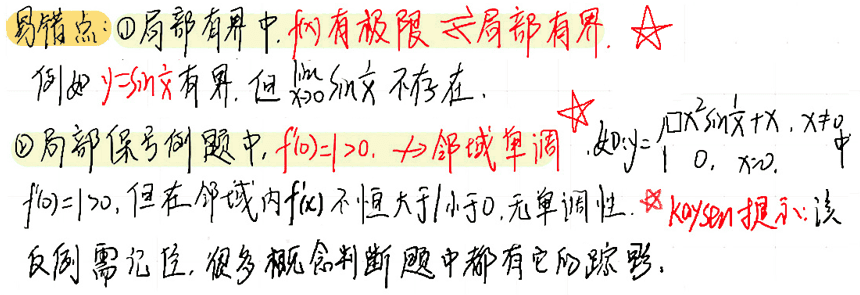 易错点:①局部有界中,f(x)有极限⇄局部有界. ☆
例如 y=sin1/x有界,但 lim x→0 sin1/x 不存在.
②局部保号例题中,f'(0)=1>0. ↛邻域单调 ☆ .如:y={x²sin1/x+x, x≠0, 0, x=0. 中
f'(0)=1>0,但在邻域内f'(x)不恒大于/小于0,无单调性. ☆ Kaysen提示:该
反例需记住,很多概念判断题中都有它的踪影.